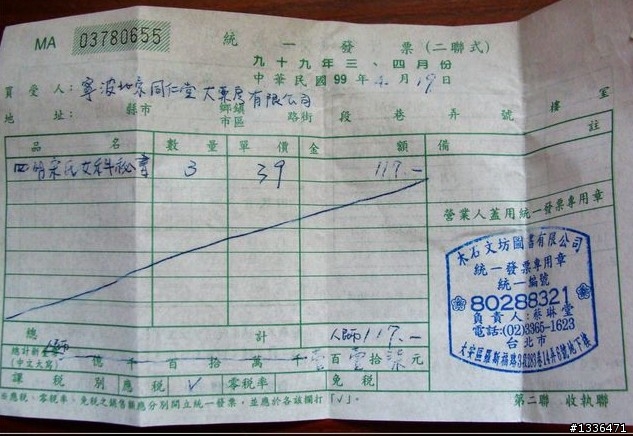 MA 03780655 統一發票(二聯式)
九十九年三、四月份
中華民國99年4月19日
買受人:寧波北京同仁堂大藥房有限公司
地址: 縣市 鄉鎮市區 路街 段 巷 弄 號 樓 室
品名 數量 單價 金額 備註
宋氏女科秘書 3 39 117.—
營業人蓋用統一發票專用章
木石文坊圖書有限公司
統一發票專用章
統一編號
80288321
負責人:蔡琳堂
電話:(02)3365-1623
台北市
大安區羅斯福路3段283巷14弄6號地下樓
總計 117.—
總計新臺幣(中文大寫) 億 千 百 拾 萬 千 百 拾 元
課稅別 應稅 V 零稅率 免稅
※應稅、零稅率、免稅之銷售額應分別開立統一發票,並應於各該欄打「V」。
第二聯 收執聯
#1336471